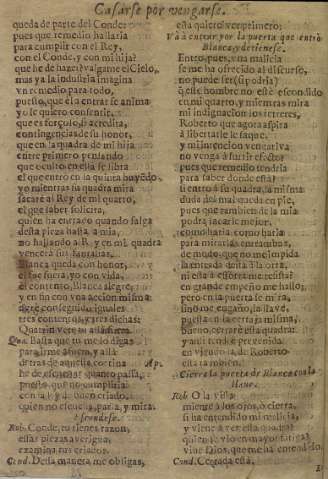 Casarse por vengarse.
queda de parte del Conde:
pues que remedio hallaria
para cumplir con el Rey,
con el Conde, y con mi hija?
que he de hazer? valgame el Cielo,
mas ya la industria imagina
vn remedio para todo,
puesto, que ella entrar se anima
y se quiero
que es forçoso,
contingencias de su honor,
que en la quadra de mi hija
entre primero
que oculto en ella se libra
el que entro en la quinta huyendo,
yo mientras su quadra mira
sacarè al Rey de mi quarto,
el que saber solicita,
quien ha entrado quando salga
desta pieza halla a mia,
no hallando al R. y en mi quadra
vencerà sus fantasias.
Blanca queda con honor,
el fue fuera, yo con vida,
el contento, Blanca alegre,
y en fin con vna accion misma
conseguidas iguales
tres contentos, y tres dichas:
Quiero ver tu
Qua. Basta que tu me lo digas
para irme ahora, y allà
detras de aquella cortina Ap.
he de escuchar quanto passa,
puesto, que no cumpliria
con la ley de buen criado,
quien no escucha, parla, y mira.
Escondese.
Rob. Conde, tu tienes razon,
essas piezas aueriga,
examina tus criados.
Cond. Dessa manera me obligas,
esta quiero ver primero;
Và à entrar por la puerta que entrò
Blanca, y detienese.
Entro, pues, vna malicia
se me ha ofrecido al discurso,
no puede ser (si podria)
q̃ este hombre no estè escondido
en mi quarto, y mientras mira
mi indignacion los retretes,
Roberto que agora aspira
à libertarle le saque,
y mi intencion vengatiua
no venga à surtir efecto:
pues que remedio tendria
para saber donde està?
si entro à su quadra, la misma
duda del mal queda en pie,
pues que tambien de la mia
podrà sacarle mejor.
como haria, como haria
para mirarlas entrambas,
de modo que no me impida
la entrada desta à la otra,
ni esta à essotra me resista?
en grande empeño me hallo;
pero en la puerta se mira,
sino me engaño, la llaue,
puesta de la cerraja misma,
bueno, cerrarè essa quadra:
y assi tendrè preuenida
en viendo la de Roberto
esta tambien.
Cierra la puerta de Blanca con la
llaue.
Rob. O la vista
miente à los ojos, ò cierra,
si ha entendido mi malicia,
y viene à ver esta quadra?
quien se viò en mayor fatiga?
viue Dios, que me ha entendido.
Cond. Cerrada està.